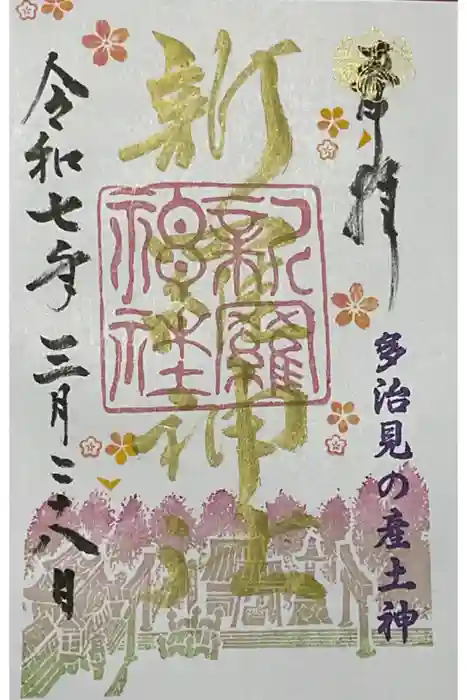 奉拝
多治見の産土神
新羅神社
新羅神社
令和七年三月二八日